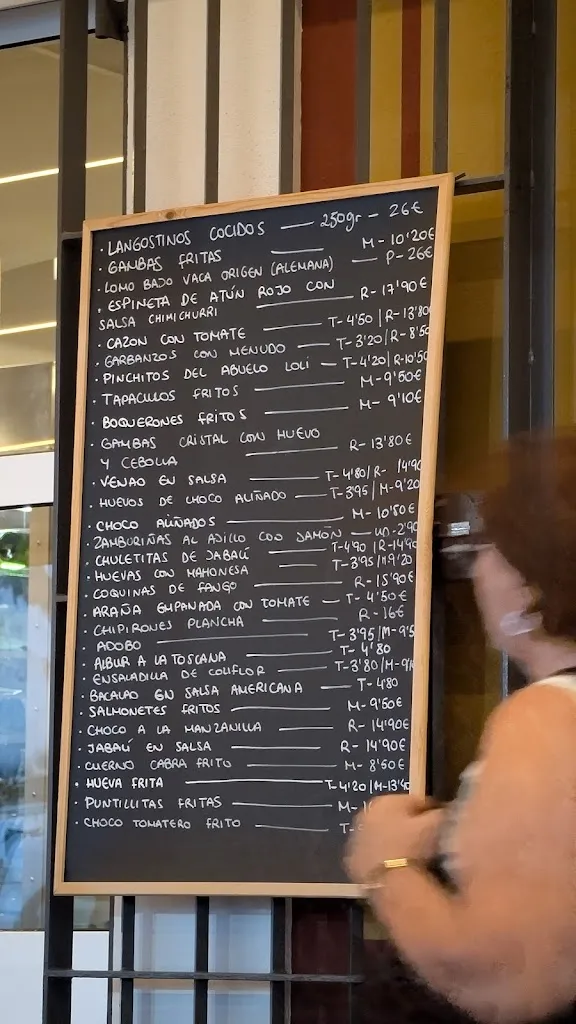 · LANGOSTINOS COCIDOS — 250gr - 26€
· GAMBAS FRITAS — M- 10'20€
· LOMO BAJO VACA ORIGEN (ALEMANA) — P- 26€
· ESPINETA DE ATÚN ROJO CON
SALSA CHIMICHURRI — R- 17'90€
· CAZON CON TOMATE — T- 4'50 | R- 13'80
· GARBANZOS CON MENUDO — T- 3'20 | R- 8'50
· PINCHITOS DEL ABUELO LOLI — T- 4'20 | R- 10'50
· TAPACULOS FRITOS — M- 9'50€
· BOQUERONES FRITOS — M- 9'10€
· GAMBAS CRISTAL CON HUEVO
Y CEBOLLA — R- 13'80€
· VENAO EN SALSA — T- 4'80 / R- 14'90
· HUEVOS DE CHOCO ALIÑADO — T- 3'95 | M- 9'20
· CHOCO ALIÑADOS — M- 10'50€
· ZAMBURIÑAS AL AJILLO CON JAMÓN — UD- 2'90
· CHULETITAS DE JABALÍ — T- 4'90 | R- 14'90
· HUEVAS CON MAHONESA — T- 3'95 | M- 9'20
· COQUINAS DE FANGO — R- 15'90€
· ARAÑA EMPANADA CON TOMATE — T- 4'50€
· CHIPIRONES PLANCHA — R- 16€
· ADOBO — T- 3'95 | M- 9'5
· ALBUR A LA TOSCANA — T- 4'80
· ENSALADILLA DE COLIFLOR — T- 3'80 | M-
· BACALAO EN SALSA AMERICANA — T- 4'80
· SALMONETES FRITOS — M- 9'50€
· CHOCO A LA MANZANILLA — R- 14'90€
· JABALÍ EN SALSA — R- 14'90€
· CUERNO CABRA FRITO — M- 8'50€
· HUEVA FRITA — T- 4'20 | M- 13'40
· PUNTILLITAS FRITAS — M-
· CHOCO TOMATERO FRITO — T-